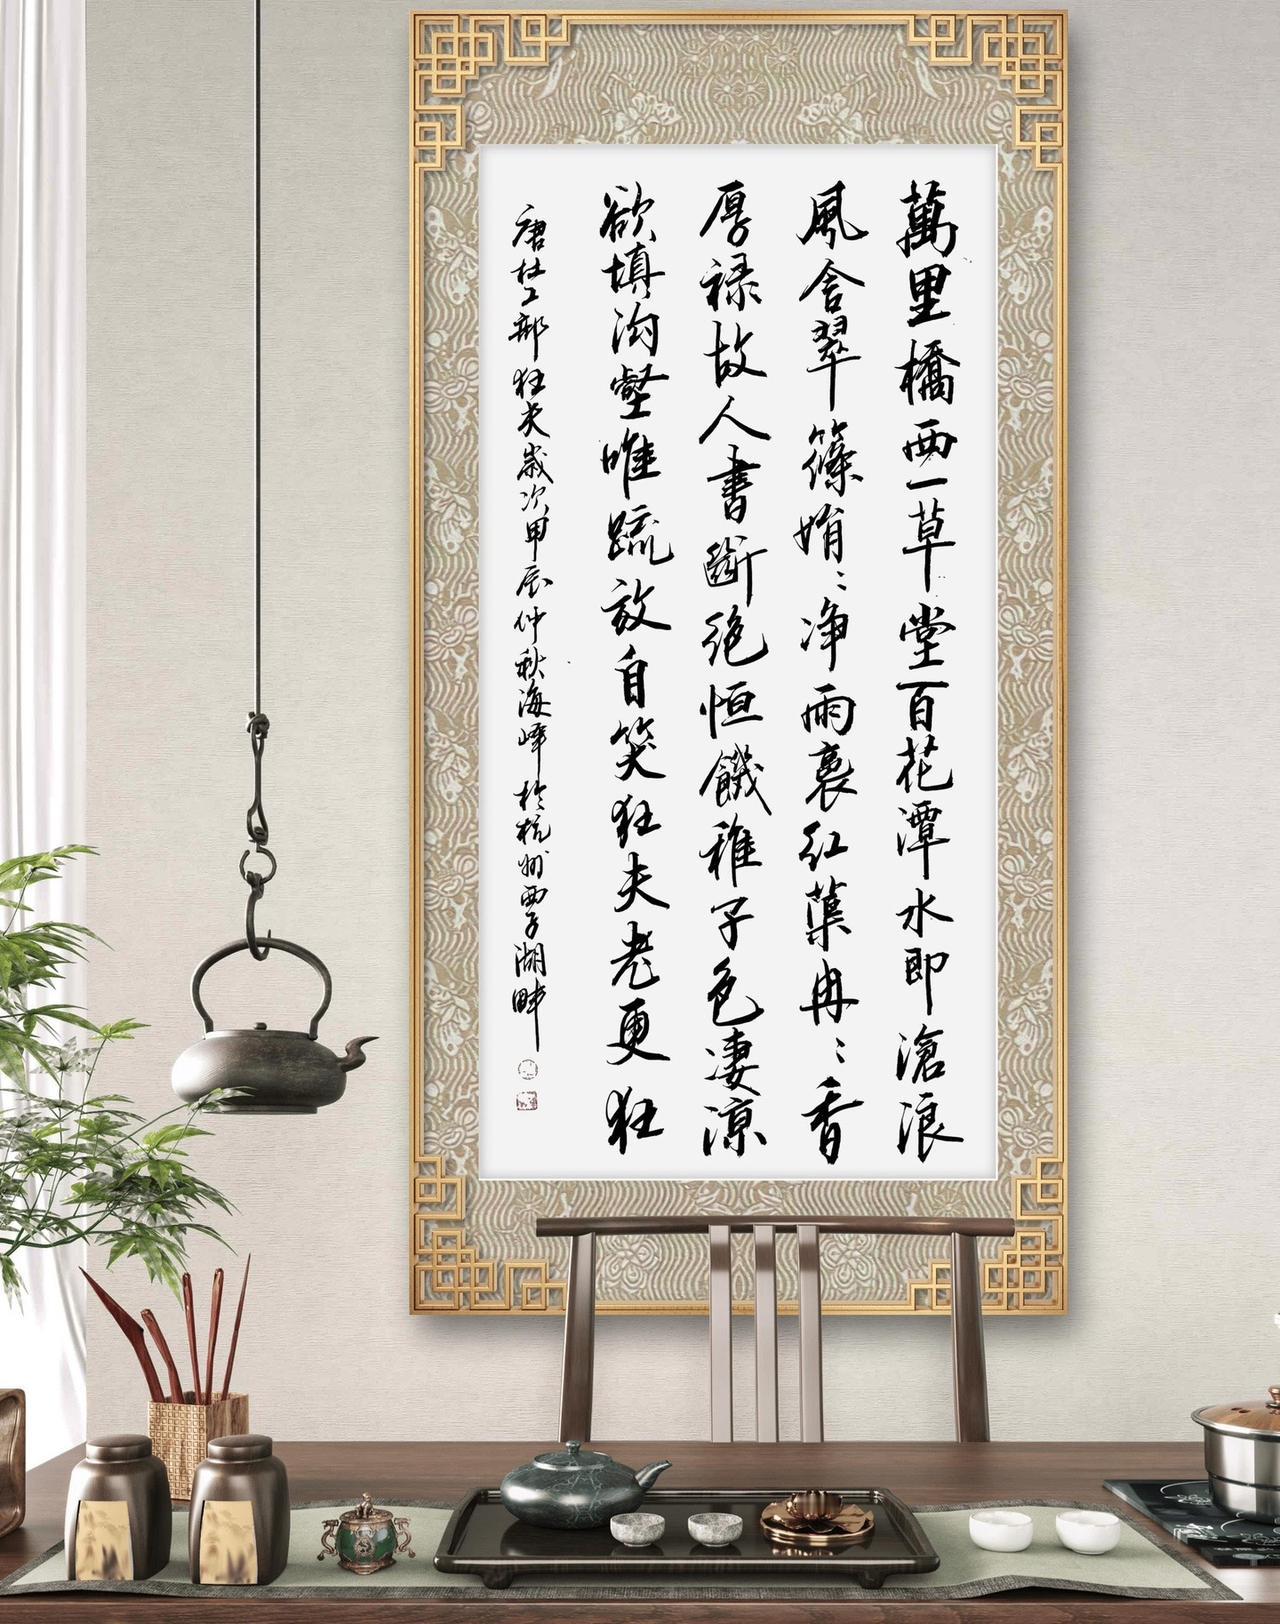 萬里橋西一草堂百花潭水即滄浪
風含翠篠娟〻净雨裛红蕖冉〻香
厚禄故人書斷绝恒饑稚子色凄涼
欲填沟壑唯疏放自笑狂夫老更狂
唐杜工部狂夫歲次甲辰仲秋海峰於杭州西子湖畔